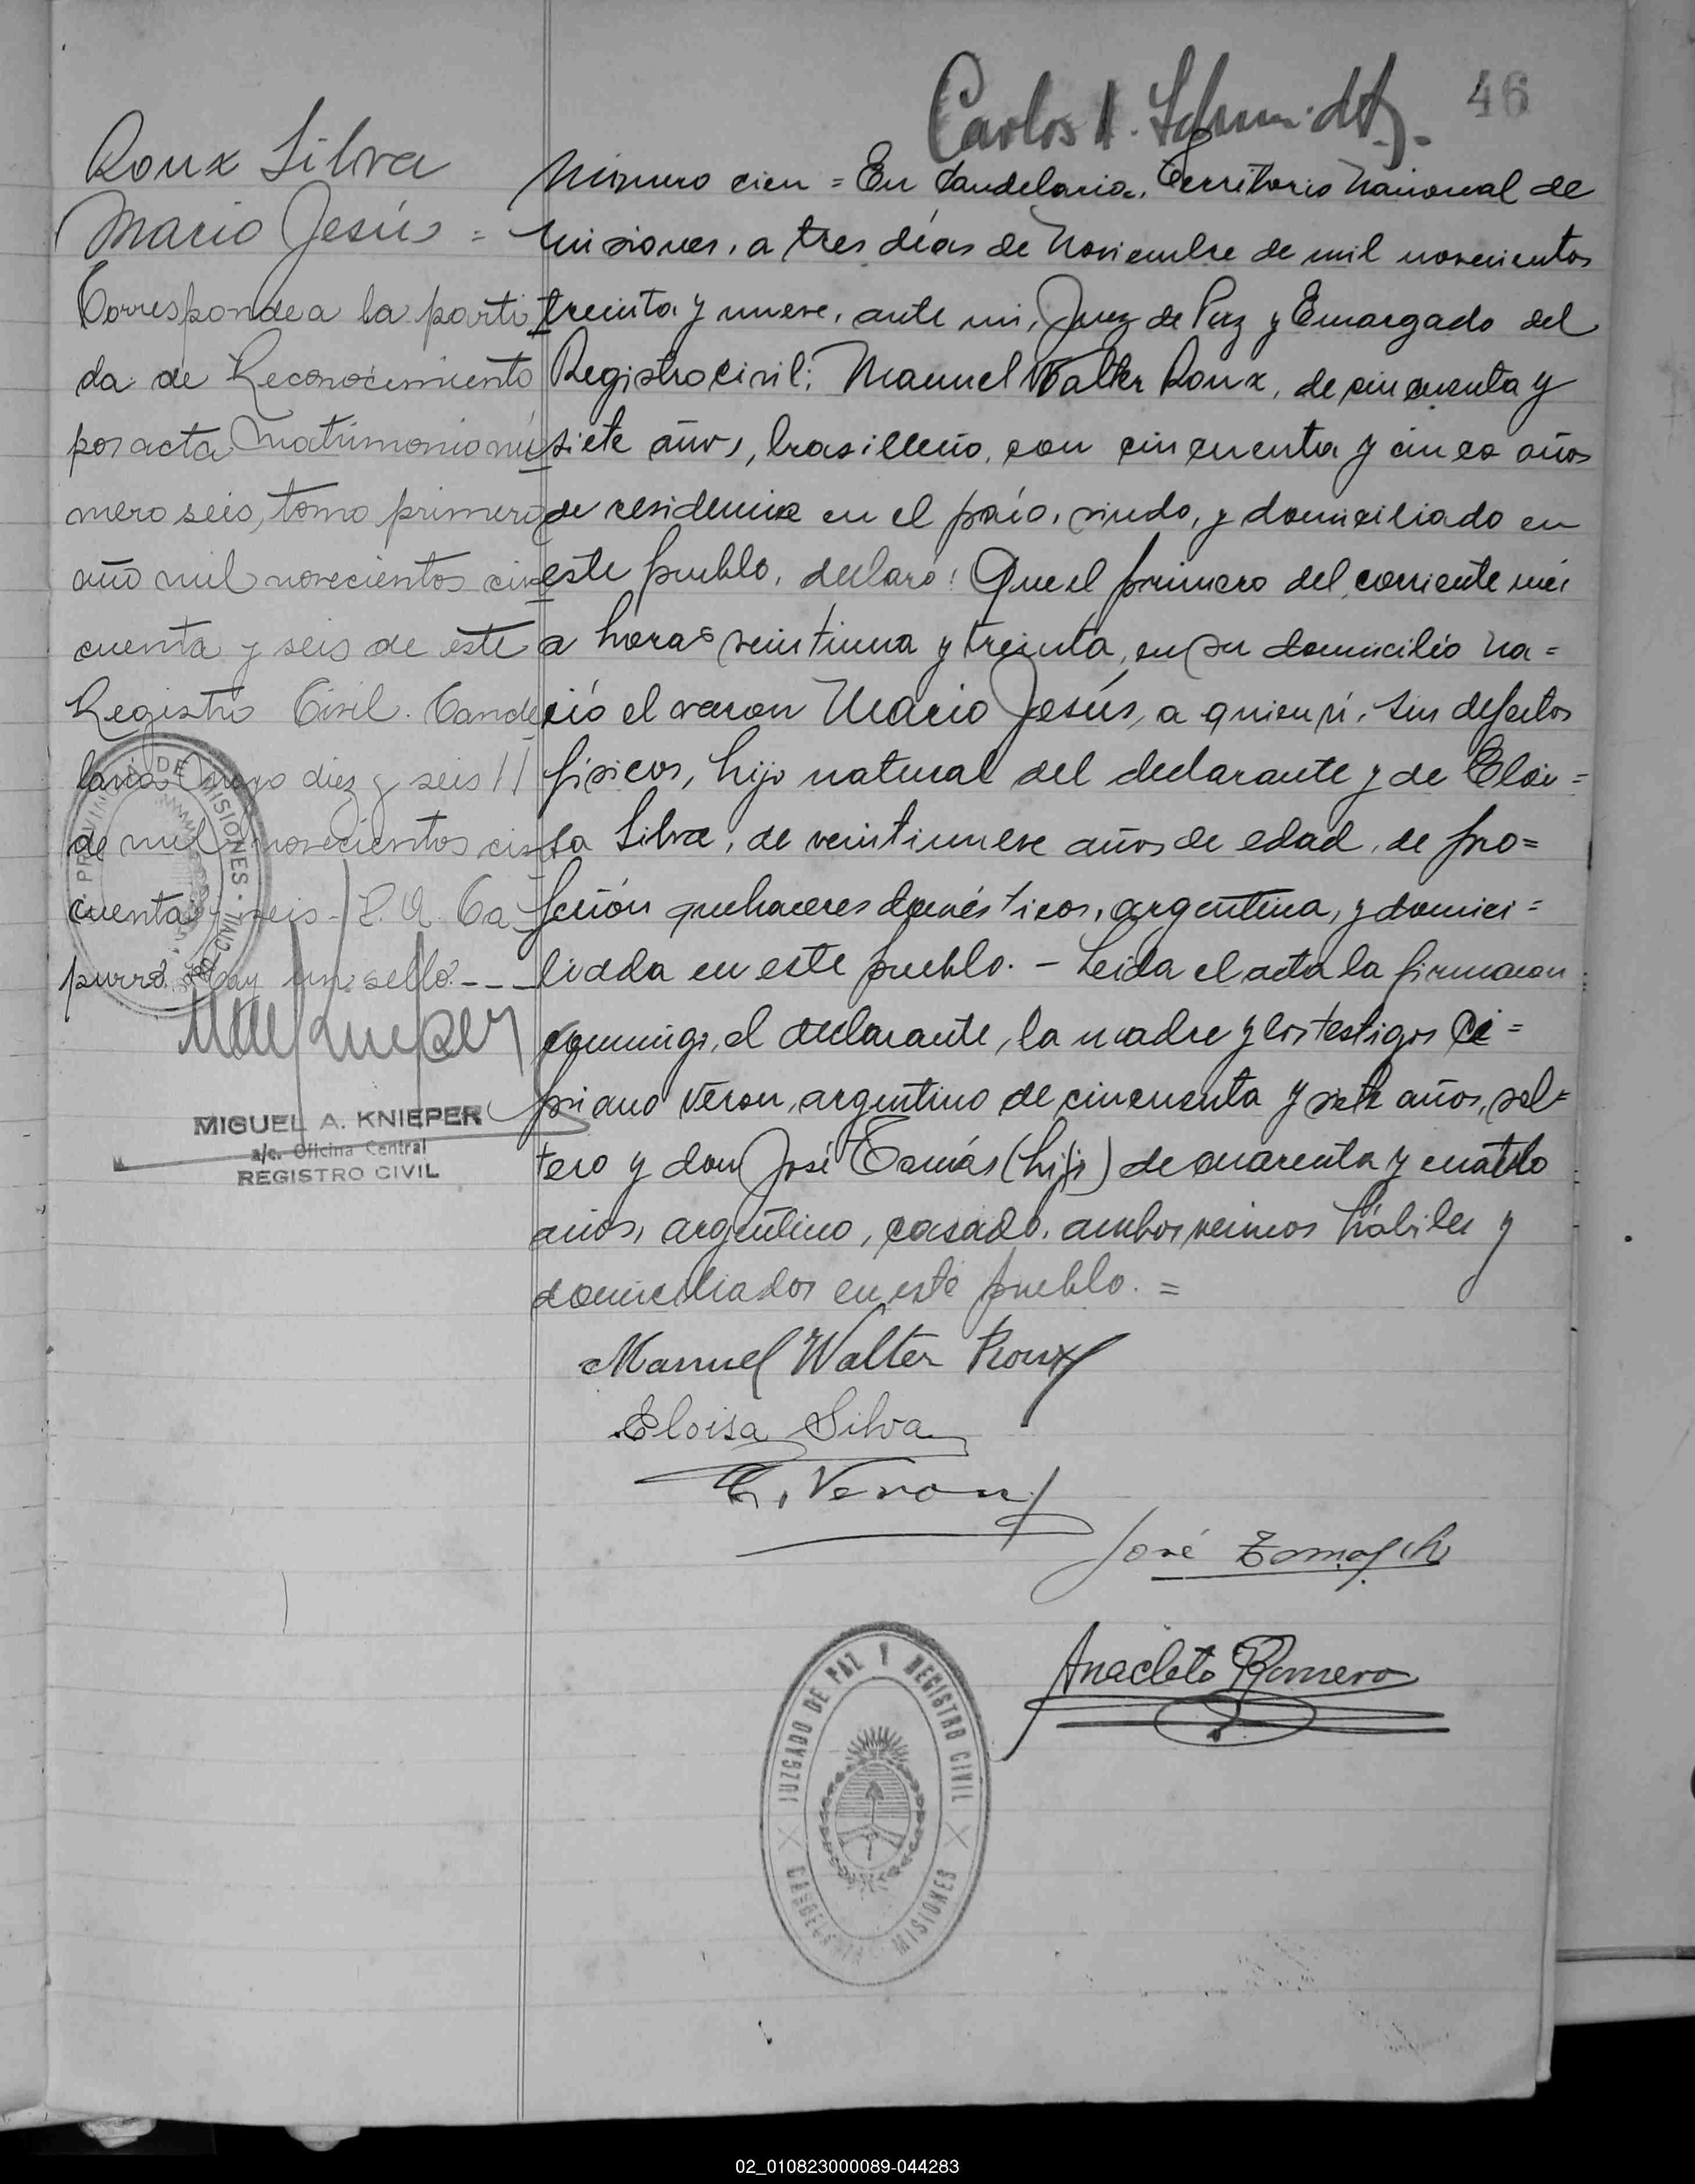 Carlos A. Schmidt.
46
Roux Silva
Mario Jesús =
Corresponde a la parti
da de Reconocimiento
por acta Matrimonio nú
mero seis, tomo primero
año mil novecientos cin
cuenta y seis de este
Registro Civil. Cande
laria mayo diez y seis //
de mil novecientos cin
cuenta y seis - Ca
purro. Hay un sello. ---
MIGUEL A. KNIEPER
a/c. Oficina Central
REGISTRO CIVIL
PROVINCIA DE MISIONES
Número cien = En Candelaria, Territorio Nacional de
Misiones, a tres días de Noviembre de mil novecientos
treinta y nueve, ante mi, Juez de Paz y Encargado del
Registro Civil: Manuel Walter Roux, de cincuenta y
siete años, brasilleño, con cincuenta y cinco años
de residencia en el país, viudo, y domiciliado en
este pueblo, declaró: Que el primero del corriente més
a horas veintiuna y treinta, en su domicilio na=
ció el varon Mario Jesús, a quien ví, sin defectos
físicos, hijo natural del declarante y de Eloi=
sa Silva, de veintinueve años de edad, de pro=
fesión quehaceres domésticos, argentina, y domici=
liada en este pueblo. - Leida el acta la firmaron
conmigo, el declarante, la madre y los testigos Ci=
priano Veron, argentino de cincuenta y siete años, sol=
tero y don José Tomás (hijo) de cuarenta y cuatro
años, argentino, casado, ambos vecinos hábiles y
domiciliados en este pueblo. =
Manuel Walter Roux
Eloisa Silva
C. Veron
José Tomas (h)
Anacleto Romero
JUZGADO DE PAZ Y REGISTRO CIVIL
CANDELARIA MISIONES
02_010823000089-044283